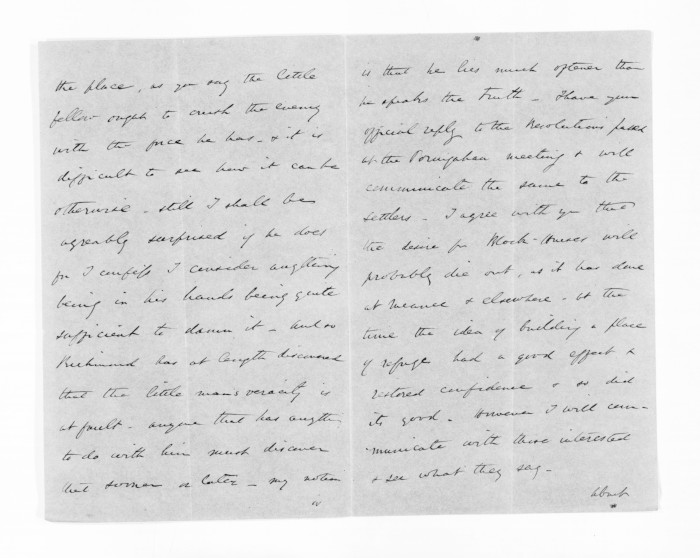 the place, as you say the little
fellow ought to crush the enemy
with the force he has - & it is
difficult to see how it can be
otherwise - still I shall be
agreably surprised if he does
for I confess I consider anything
being in his hands being quite
sufficient to damn it - and so
Richmond has at length discovered
that the little man's veracity is
at fault - anyone that has anythg
to do with him must discover
that sooner or later - my notion
is that he lies much oftener than
he speaks the truth - I have your
official reply to the Resolutions passed
at the Porangahau meeting & will
communicate the same to the
settlers - I agree with you that
the desire for Block-Houses will
probably die out, as it has done
at Meanee & elsewhere - at the
time the idea of building a place
of refuge had a good effect &
restored confidence & so did
its good - However I will com-
municate with those interested
& see what they say -